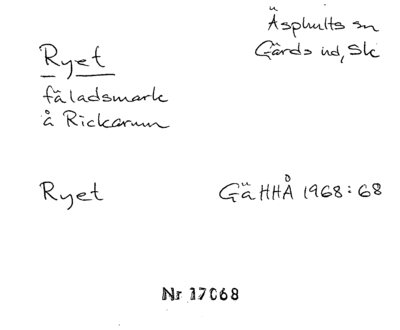 Ryet
fäladsmark
å Rickarum
Äsphults sn
Gärds hd, Sk
Ryet
GäHHÅ 1968:68
Nr 17068